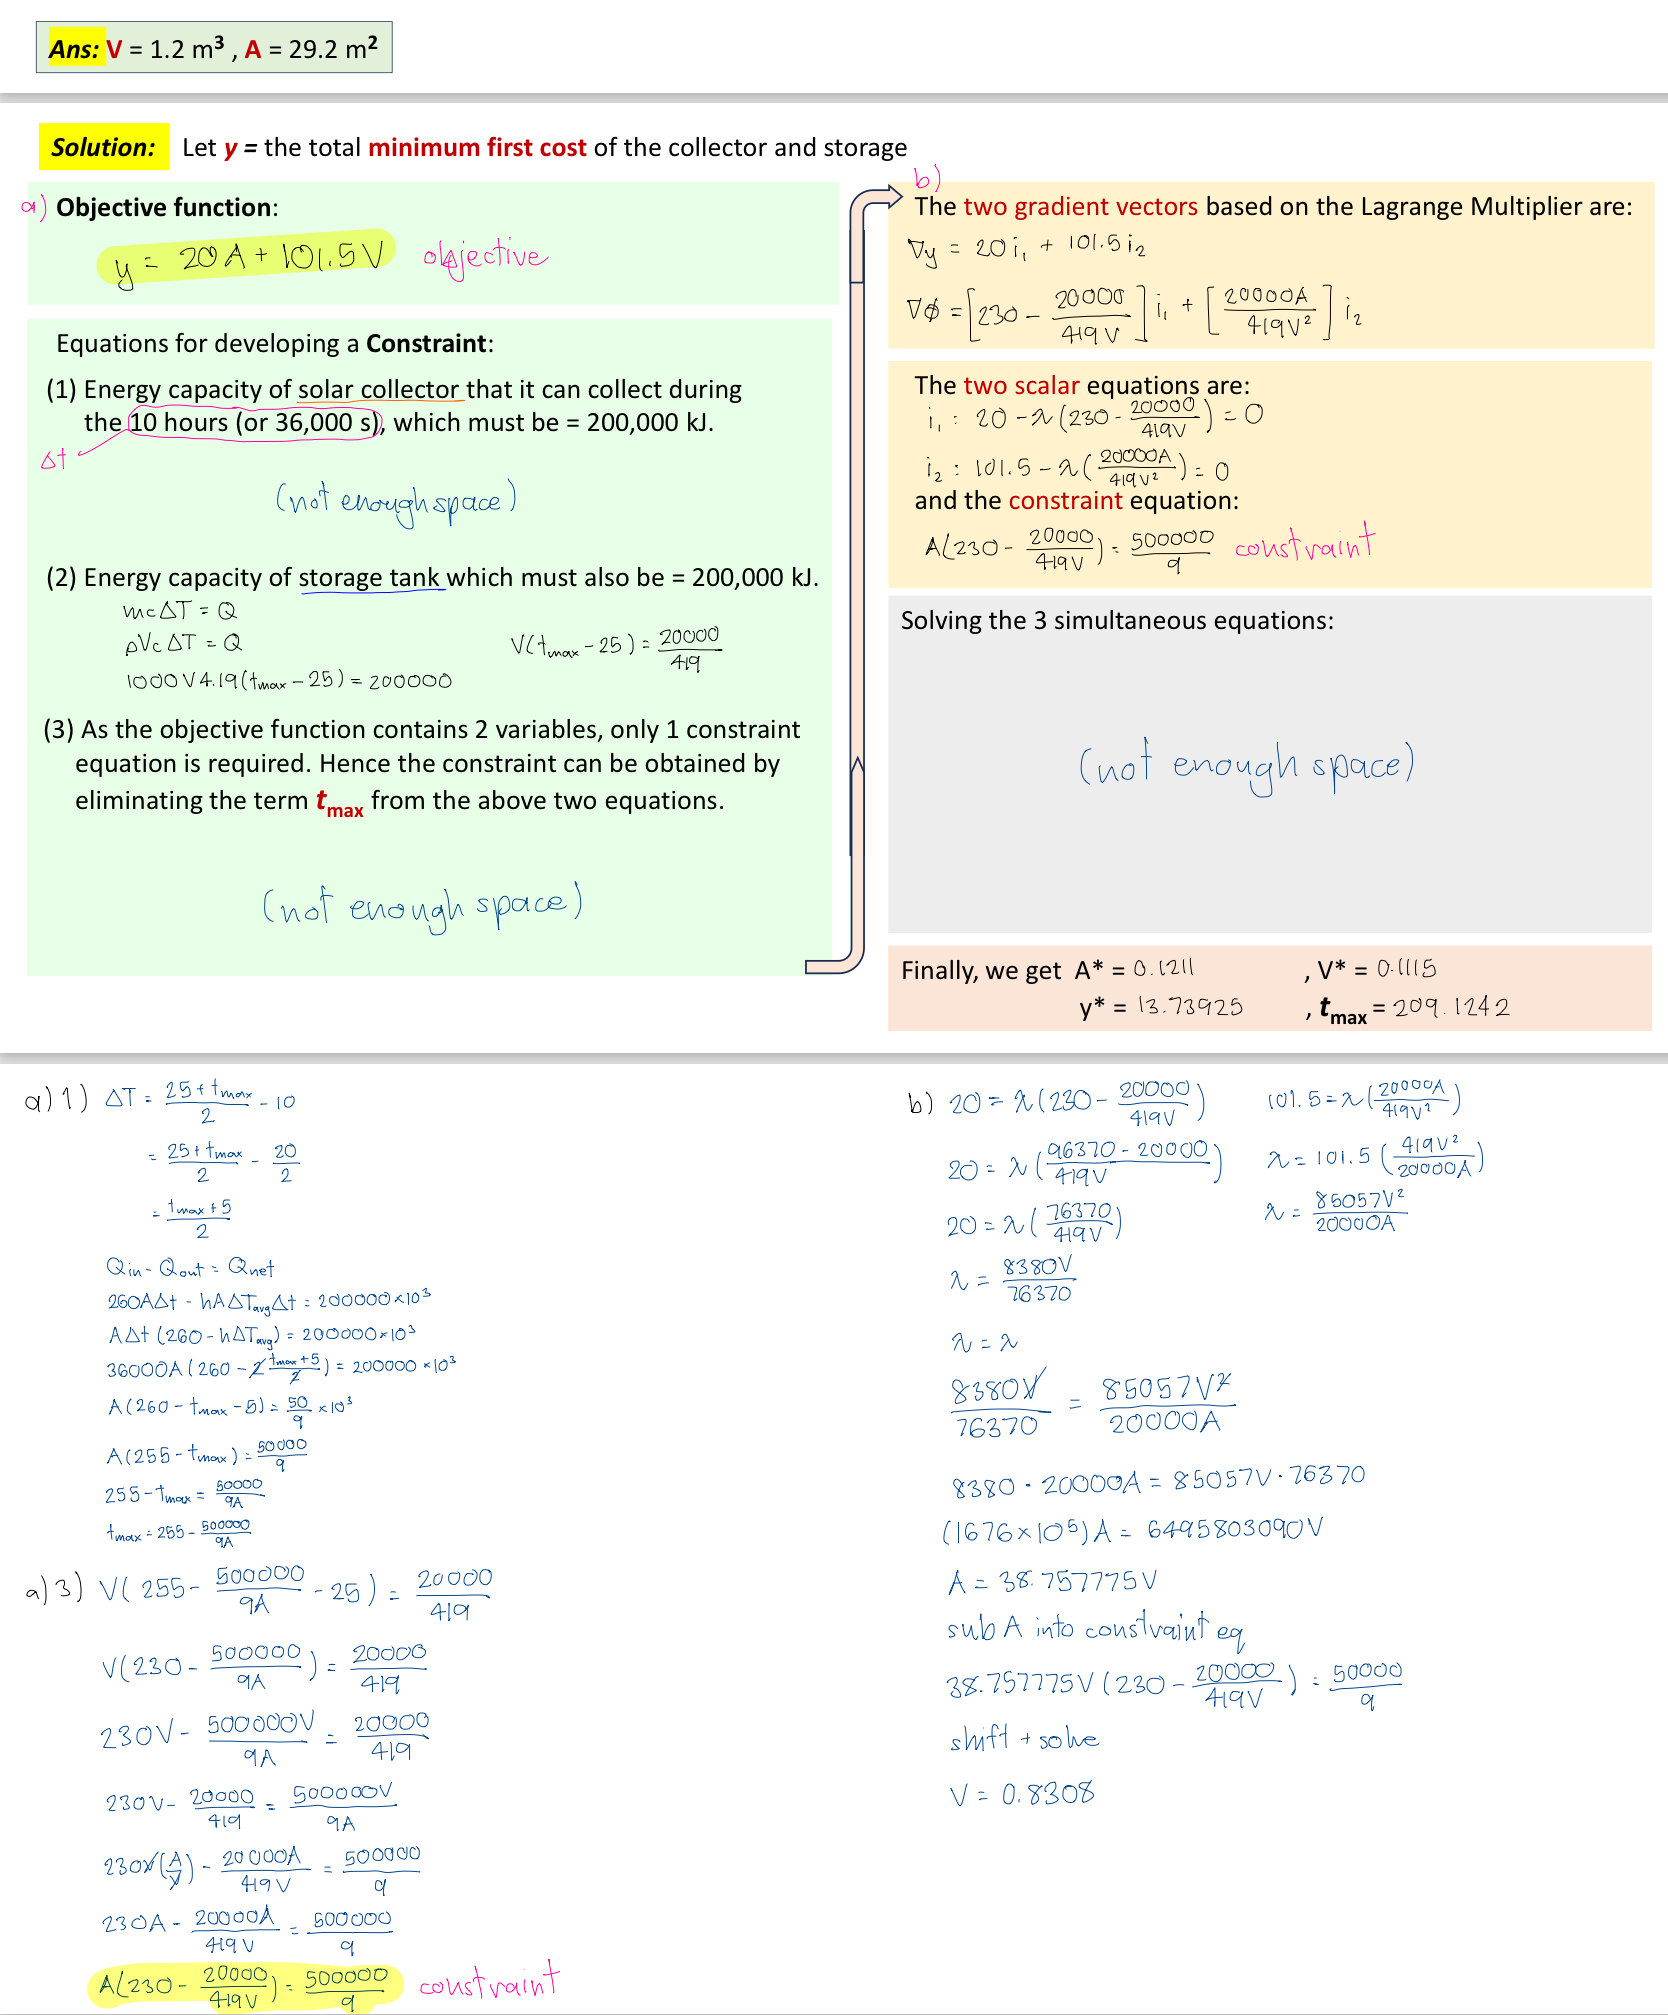 Ans: V = 1.2 m³ , A = 29.2 m²
Solution: Let y = the total minimum first cost of the collector and storage
a) Objective function:
y = 20A + 101.5V objective
Equations for developing a Constraint:
(1) Energy capacity of solar collector that it can collect during
the 10 hours (or 36,000 s), which must be = 200,000 kJ.
Δt
(not enough space)
(2) Energy capacity of storage tank which must also be = 200,000 kJ.
mcΔT = Q
ρVcΔT = Q
V(tmax - 25) = 20000/419
1000V4.19(tmax - 25) = 200000
(3) As the objective function contains 2 variables, only 1 constraint
equation is required. Hence the constraint can be obtained by
eliminating the term tmax from the above two equations.
(not enough space)
b)
The two gradient vectors based on the Lagrange Multiplier are:
∇y = 20i₁ + 101.5i₂
∇φ = [230 - 20000/419V] i₁ + [20000A/419V²] i₂
The two scalar equations are:
i₁ : 20 - λ(230 - 20000/419V) = 0
i₂ : 101.5 - λ(20000A/419V²) = 0
and the constraint equation:
A(230 - 20000/419V) = 500000/9 constraint
Solving the 3 simultaneous equations:
(not enough space)
Finally, we get A* = 0.1211 , V* = 0.1115
y* = 13.73925 , tmax = 209.1242
a) 1) ΔT = (25 + tmax)/2 - 10
= (25 + tmax)/2 - 20/2
= (tmax + 5)/2
Qin - Qout = Qnet
260AΔt - hAΔTavgΔt = 200000 × 10³
AΔt (260 - hΔTavg) = 200000 × 10³
36000A (260 - 2 (tmax + 5)/2) = 200000 × 10³
A(260 - tmax - 5) = 50/9 × 10³
A(255 - tmax) = 50000/9
255 - tmax = 50000/9A
tmax = 255 - 500000/9A
a) 3) V(255 - 500000/9A - 25) = 20000/419
V(230 - 500000/9A) = 20000/419
230V - 500000V/9A = 20000/419
230V - 20000/419 = 500000V/9A
230V(A/V) - 20000A/419V = 500000/9
230A - 20000A/419V = 500000/9
A(230 - 20000/419V) = 500000/9 constraint
b) 20 = λ(230 - 20000/419V)
20 = λ((96370 - 20000)/419V)
20 = λ(76370/419V)
λ = 8380V/76370
101.5 = λ(20000A/419V²)
λ = 101.5 (419V²/20000A)
λ = 85057V²/20000A
λ = λ
8380V/76370 = 85057V²/20000A
8380 · 20000A = 85057V · 76370
(1676 × 10⁵)A = 6495803090V
A = 38.757775V
sub A into constraint eq
38.757775V (230 - 20000/419V) = 50000/9
shift + solve
V = 0.8308